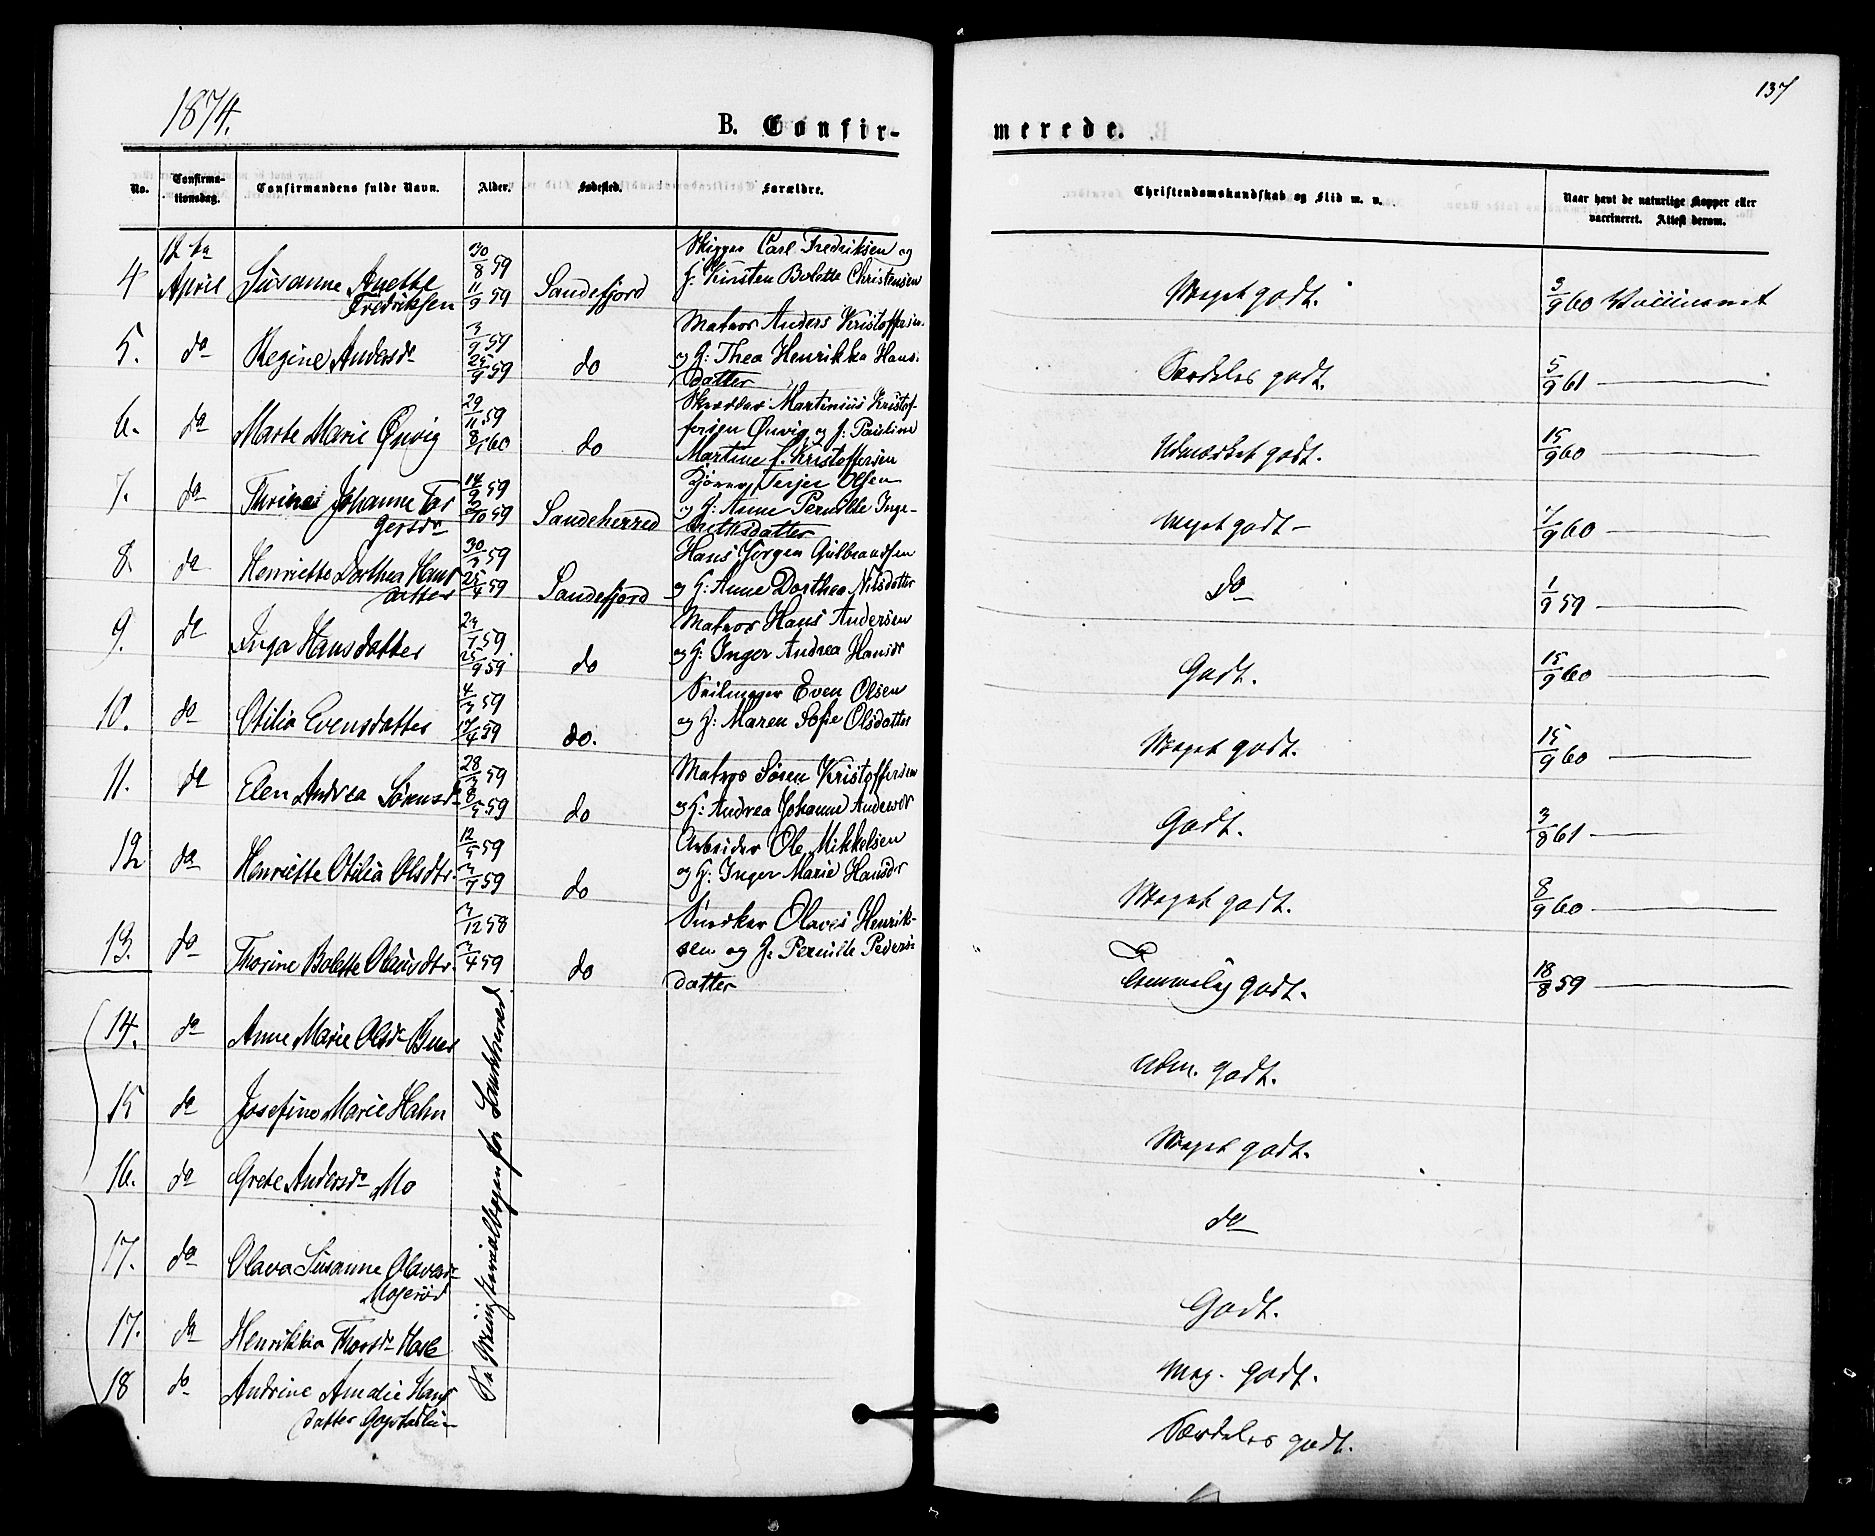 1874.
137
B. Confir-
merede.
No.
Confirma-
tionsdag.
Confirmandens fulde Navn.
Alder.
Fødested.
Forældre.
Christendomskundskab og Flid m. v.
Naar havt de naturlige Kopper eller
vaccineret. Attest derom.
4
12te
April
Susanne Anette
Fredriksen
30/8 59
11/9 59
Sandefjord
Skipper Carl Fredriksen og
H: Kirsten Bolette Christensen
Meget godt.
3/9 60 Vaccineret
5.
do
Regine Andersdr
3/9 59
25/9 59
do
Matros Anders Kristoffersen
og H: Thea Henrikka Hans-
datter
Særdeles godt.
5/9 61
6.
do
Marte Marie Ønvig
29/11 59
8/1 60
do
Skrædder Martinius Kristof-
fersen Ønvig og H: Pauline
Martine f. Kristoffersen
Udmærket godt.
15/9 60
7.
do
Thrine Johanne Ter
gersdr
14/9 59
2/10 59
Sandeherred
Terjer Olsen
og H: Anne Pernille Inge-
bretsdatter
Meget godt
7/9 60
8
do
Henriette Dorthea Hans
datter
30/3 59
25/4 59
Sandefjord
Hans Jørgen Gulbrandsen
og H: Anne Dorthea Nilsdatter
do
1/9 59
9.
do
Inga Hansdatter
23/7 59
25/9 59
do
Matros Hans Andersen
og H: Inger Andrea Hansdr
Godt.
15/9 60
10.
do
Otilia Evensdatter
4/3 59
17/4 59
do.
Seilmager Even Olsen
og H: Maren Sofie Olsdatter
Meget godt.
15/9 60
11.
do
Elen Andrea Sørensdr
28/3 59
8/5 59
do
Matros Søren Kristoffersen
og H: Andrea Johanne Andersdr
Godt.
3/8 61
12
do
Henriette Otilia Olsdtr.
12/5 59
3/7 59
do
Arbeider Ole Mikkelsen
og H: Inger Marie Hansdr
Meget godt.
8/9 60
13.
do
Thorine Bolette Olausdtr.
3/12 58
3/4 59
do
Snedker Olaves Henrik-
sen og H: Pernille Peders-
datter
Temmelig godt.
18/8 59
14.
do
Anne Marie Olsdr Buer
Udm. godt.
15
do
Josefine Marie Hahn
Meget godt.
16.
do
Grete Andersdr Mo
do
17.
do
Olava Susanne Olavesdr
Mojerød
Godt.
17.
do
Henrikka Thorsdr Hasle
Meg. godt.
18
do
Andrine Amalie Hans
datter
Særdeles godt.
Se Ministerialbogen for Sandeherred